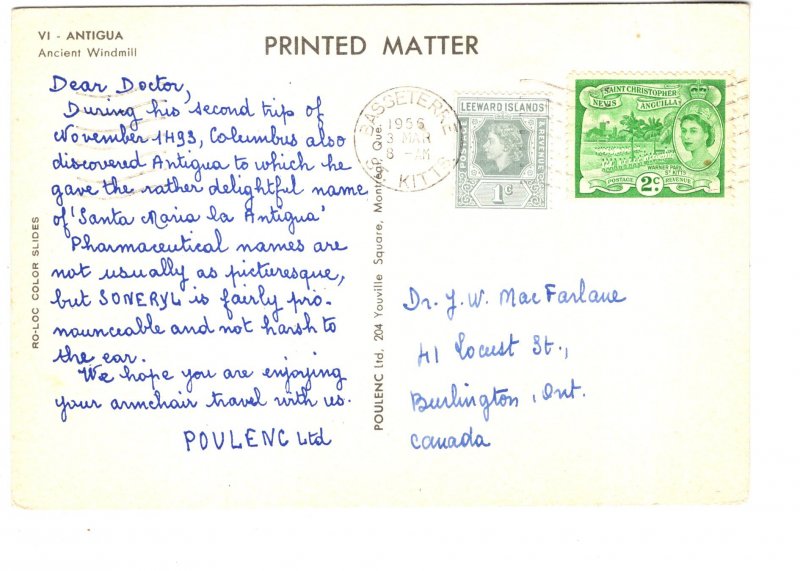 VI - ANTIGUA
Ancient Windmill
PRINTED MATTER
Dear Doctor,
During his second trip of
November 1493, Columbus also
discovered Antigua to which he
gave the rather delightful name
of 'Santa Maria la Antigua'
Pharmaceutical names are
not usually as picturesque,
but SONERYL is fairly pro-
nounceable and not harsh to
the ear.
We hope you are enjoying
your armchair travel with us.
POULENC Ltd
RO-LOC COLOR SLIDES
POULENC Ltd. 204 Youville Square, Montreal, Que.
BASSETERRE
1956
3 MAR
8 - AM
ST. KITTS
LEEWARD ISLANDS
POSTAGE
& REVENUE
1c
SAINT CHRISTOPHER
NEVIS ANGUILLA
WARNER PARK
ST KITTS
POSTAGE 2c. REVENUE
Dr. J. W. MacFarlane
41 Locust St.,
Burlington, Ont.
Canada